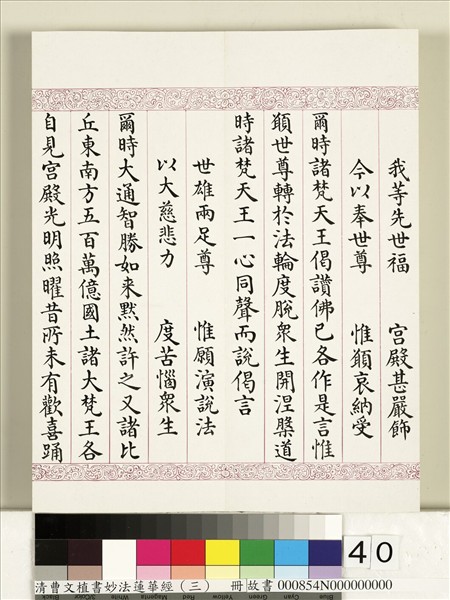 我等先世福　宮殿甚嚴飾
今以奉世尊　惟願哀納受
爾時諸梵天王偈讚佛已各作是言惟
願世尊轉於法輪度脫衆生開涅槃道
時諸梵天王一心同聲而說偈言
世雄兩足尊　惟願演說法
以大慈悲力　度苦惱衆生
爾時大通智勝如来默然許之又諸比
丘東南方五百萬億國土諸大梵王各
自見宫殿光明照曜昔所未有歡喜踊
40
清曹文植書妙法蓮華經（三）　冊 故書 000854N000000000
Black 3/Color White Magenta Red Yellow Green Cyan Blue